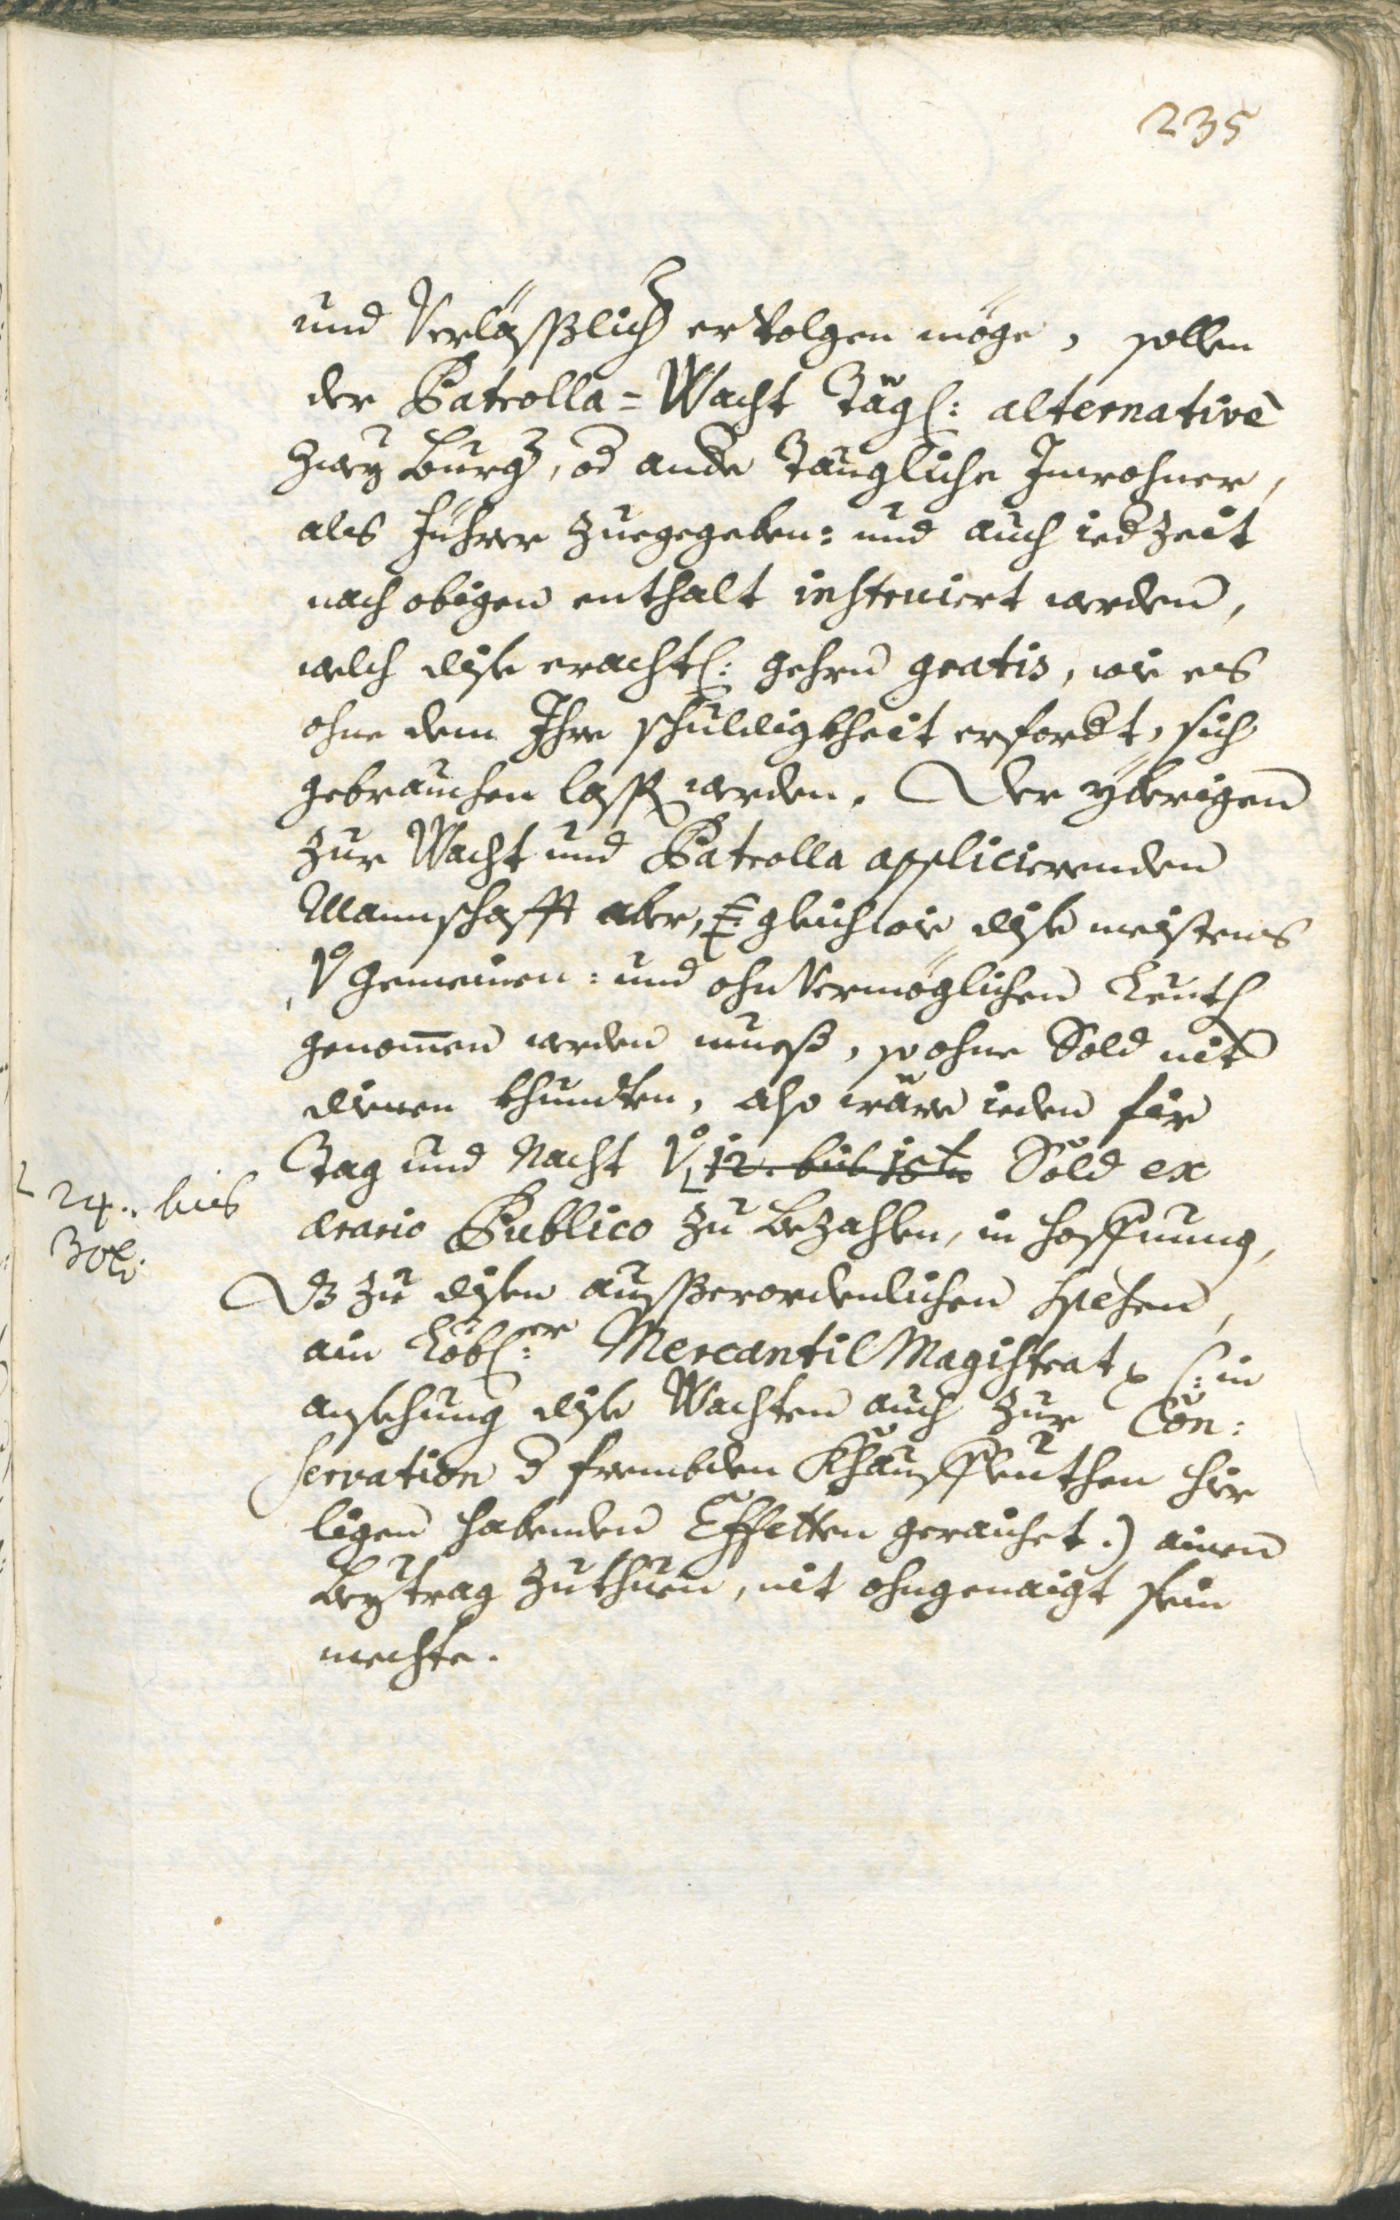 235
und Verläßlich ervolgen möge, sollen
der Patrolla=Wacht Tägl: alternativè
zwey Burg, od ande Taugliche Inwohner,
als Führer zuegegeben: und auch iedzeit
nach obigen enthalt instruiert werden,
welch dise erachtl: gehrn gratis, wie es
ohne dem Ihre schuldigkheit erfordt, sich
gebrauchen lass werden. Der yberigen
zur Wacht und Patrolla applicierenden
Mannschafft aber, gleichwie dise meistens
V gemeinen: und ohnvermöglichen Leuth
genomen werden mueß, so ohne Sold nit
dienen khundten, also wäre ieden für
Tag und Nacht V 12. bis 15 Sold ex
24. bis
30 x:
ærario Publico zu bezahlen, in hoffnung,
dz zu disen ausserordenlichen spesen,
ain Löbl:er Mercantil Magistrat (: in
ansehung dise Wachten auch zur Con:
servation d frembden Khauffleuthen hier
ligen habenden Effetten geraichet :) ainen
beytrag zuthuen, nit ohngenaigt sein
mechte.